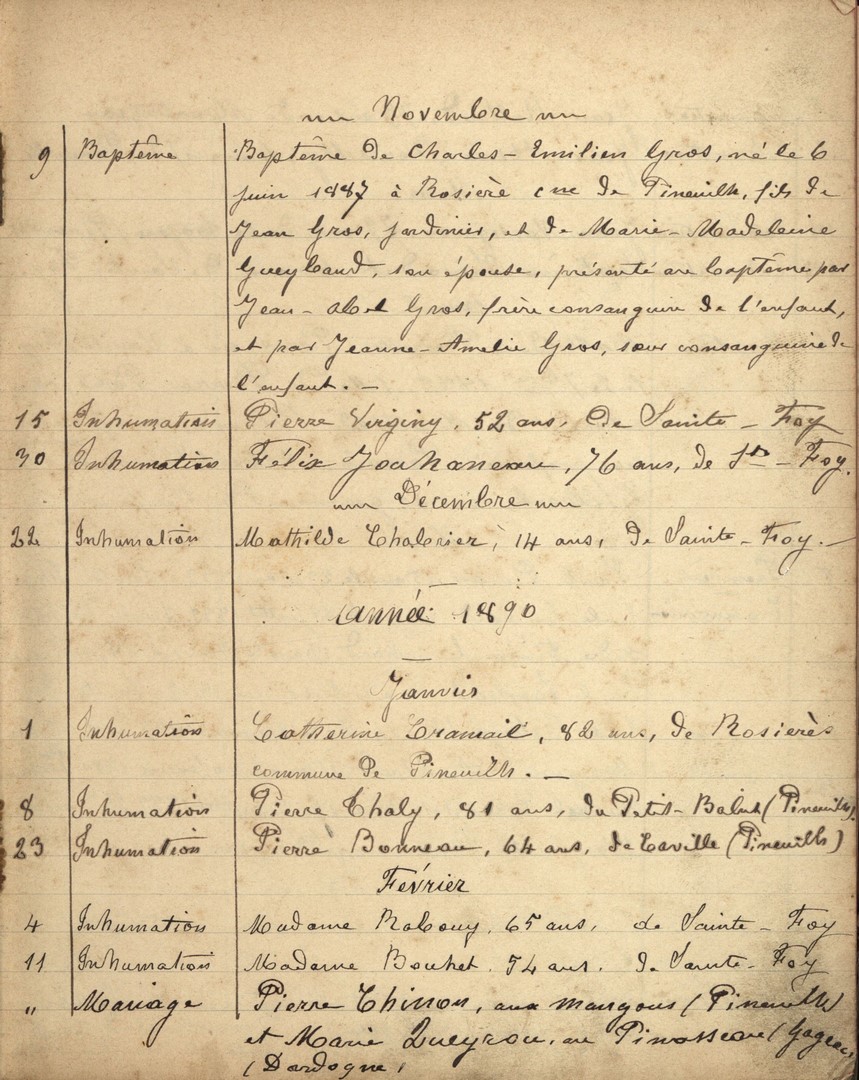 Novembre
9 Baptême Baptême de Charles-Emilien Gros, né le 6
juin 1887 à Rosière cne de Pineuilh, fils de
Jean Gros, jardinier, et de Marie-Madeleine
son épouse, présenté au baptême par
Jean-Abel Gros, frère consanguin de l'enfant,
et par Jeanne-Amélie Gros, sœur consanguine de
l'enfant. —
15 Inhumation Pierre Virginy, 52 ans, de Sainte-Foy
30 Inhumation Félix Joahaneau, 76 ans, de Ste-Foy.
Décembre
22 Inhumation Mathilde Chabrier, 14 ans, de Sainte-Foy. —
Année 1890
Janvier
1 Inhumation Catherine 82 ans, de Rosières
commune de Pineuilh. —
8 Inhumation Pierre Thaly, 81 ans, du Petit- (Pineuilh).
23 Inhumation Pierre Bonneau, 64 ans, de (Pineuilh)
Février
4 Inhumation Madame Rabouy, 65 ans, de Sainte-Foy
11 Inhumation Madame Bouhet. 54 ans. de Sainte-Foy
" Mariage Pierre Chinon, aux mangons (Pineuilh)
et Marie Queyrou, au
(Dordogne,